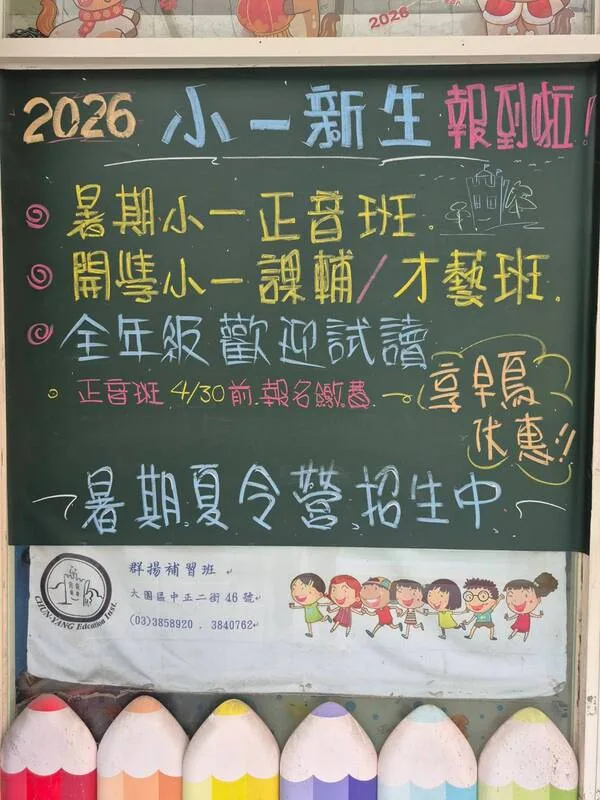 2026
2026 小一新生 報到啦!
暑期小一正音班.
開學小一課輔/才藝班.
全年級歡迎試讀
正音班 4/30前.報名繳費.
享早鳥
休惠!!
暑期.夏令營.招生中
群揚補習班
大園區中正二街46號
(03)3858920 . 3840762
CHUN-YANG Education Inst.